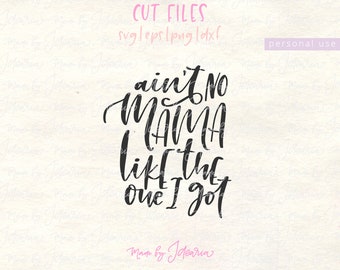 CUT FILES
svg|eps|png|dxf
personal use
ain't NO
MAMA
like the
one I got
made by